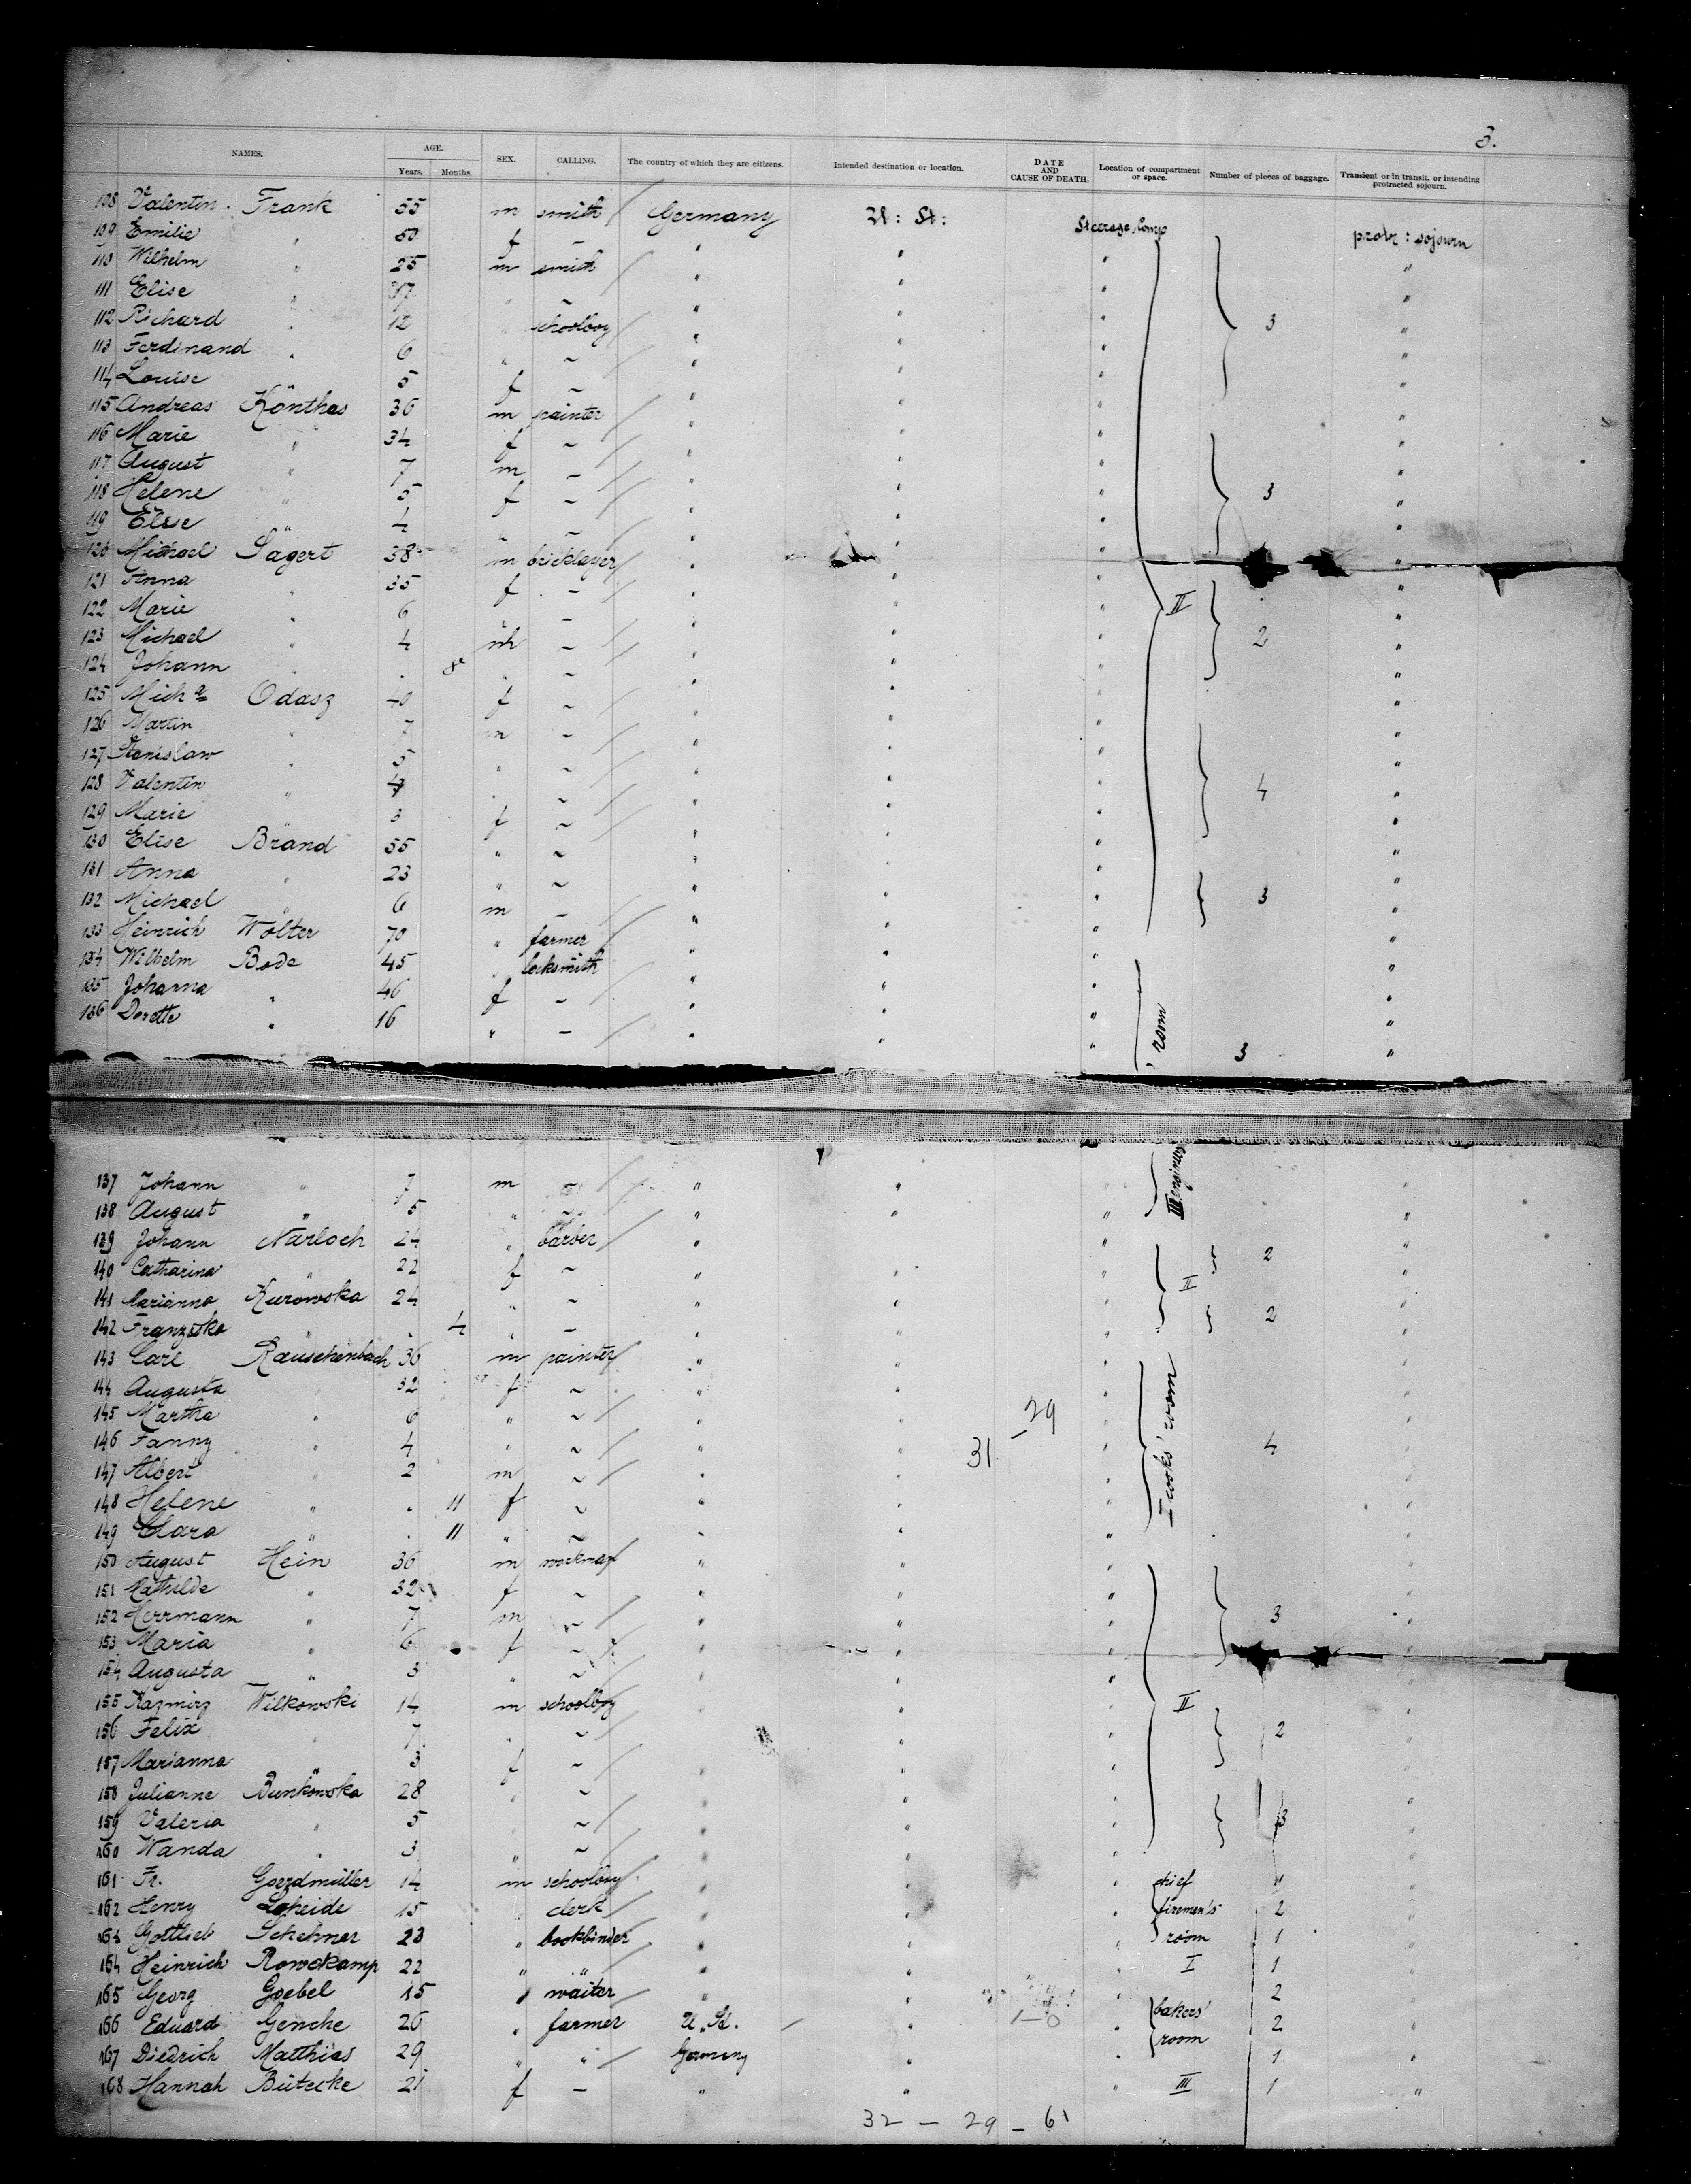 3.
NAMES. AGE. Years. Months. SEX. CALLING. The country of which they are citizens. Intended destination or location. DATE AND CAUSE OF DEATH. Location of compartment or space. Number of pieces of baggage. Transient or in transit, or intending protracted sojourn.
108 Valentin Frank 55 m smith Germany U: St: Steerage, Comp protr: sojourn
109 Emilie " 50 f – " " " "
110 Wilhelm " 25 m smith " " " "
111 Elise " " ~ " " " "
112 Richard " 12 " schoolboy " " " 3 "
113 Ferdinand " 6 " ~ " " " "
114 Louise " 5 f ~ " " " "
115 Andreas Könthas 36 m painter " " " "
116 Marie " 34 f ~ " " " "
117 August " 7 m – " " " "
118 Helene " 5 f ~ " " " 3 "
119 Elise " 4 " ~ " " " "
120 Michael Sägert 38 m bricklayer " " " "
121 Anna " 35 f – " " " "
122 Marie " 6 " – " " " II "
123 Michael " 4 m ~ " " " 2 "
124 Johann " . 8 " ~ " " " "
125 Mich a Odasz 40 f ~ " " " "
126 Martin " 7 m ~ " " " "
127 Stanislaw " 5 " ~ " " " "
128 Valentin " 4 " ~ " " " 4 "
129 Marie " 3 f ~ " " " "
130 Elise Brand 55 " ~ " " " "
131 Anna " 23 " ~ " " " "
132 Michael " 6 m – " " " 3 "
133 Heinrich Wolter 70 " farmer " " " "
134 Wilhelm Bode 45 " locksmith " " " "
135 Johanna " 46 f – " " " "
136 Dorette " 16 " – " " " room 3 "
137 Johann " 7 m – " " III
138 August " 5 " ~ " " " "
139 Johann Narloch 24 " barber " " 2 "
140 Catharina " 22 f ~ " " " II "
141 Marianna Kurowska 24 " ~ " " "
142 Franziska " . 4 " – " " " 2 "
143 Carl Rauschenbach 36 m painter " " " "
144 Augusta " 32 f ~ " " " "
145 Martha " 6 " ~ " " 29 " I cooks' room "
146 Fanny " 4 " ~ " " 31 " 4 "
147 Albert " 2 m ~ " " " "
148 Helene " . 11 f ~ " " " "
149 Clara " . 11 " ~ " " " "
150 August Hein 36 m workman " " " "
151 Mathilde " 32 f ~ " " " "
152 Herrmann " 7 m ~ " " " 3 "
153 Maria " 6 f ~ " " " "
154 Augusta " 3 " ~ " " " "
155 Kazmirz Wilkowski 14 m schoolboy " " " II "
156 Felix " 7 " ~ " " " 2 "
157 Marianna " 3 f ~ " " " "
158 Julianne Bunkowska 28 " ~ " " " "
159 Valeria " 5 " ~ " " " 3 "
160 Wanda " 3 " ~ " " " "
161 Fr. 14 m schoolboy " " " chief "
162 Henry 15 " clerk " " " firemen's 2 "
163 Gottlieb 23 " bookbinder " " " room 1 "
164 Heinrich Rowekamp 22 " " " " " I 1 "
165 Georg Goebel 15 " waiter " " " 2 "
166 Eduard Gencke 26 " farmer U. St. " " bakers' 2 "
167 Diedrich Matthias 29 " " Germany " " room 1 "
168 Hannah Bütecke 21 f – " " " III 1 "
32 – 29 – 61